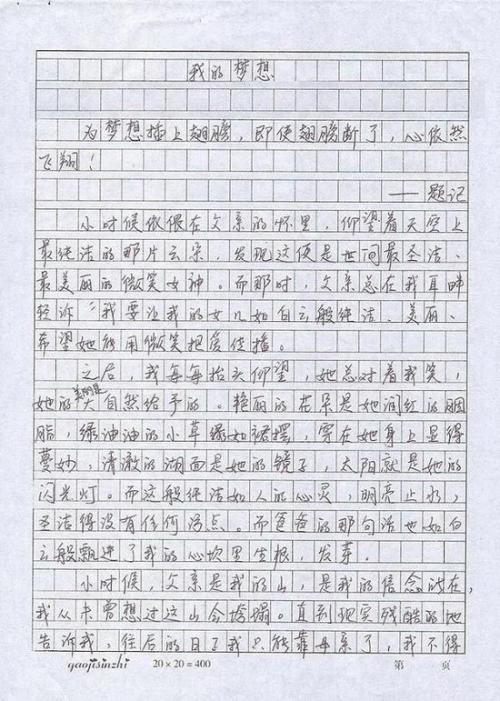 我的梦想
为梦想插上翅膀，即使翅膀断了，心依然
飞翔！
——题记
小时候依偎在父亲的怀里，仰望着天空上
最纯洁的那片云朵，发现这便是世间最圣洁、
最美丽的微笑女神。而那时，父亲总在我耳畔
轻诉“我要让我的女儿如白云般纯洁、美丽、
希望她能用微笑把爱传播。
之后，我每每抬头仰望，她总对着我笑，
她的美的是大自然给予的。艳丽的花朵是她润红的胭
脂，绿油油的小草绿如裙摆，穿在她身上显得
曼妙，清澈的湖面是她的镜子，太阳就是她的
闪光灯。而这般纯洁如人的心灵，明亮止水，
圣洁得没有任何污点。而爸爸的那句话也如白
云般飘进了我的心坎里生根，发芽。
小时候，父亲是我的山，是我的信念所在，
我从未曾想过这山会垮塌。直到现实残酷的地
告诉我，往后的日子我只能靠母亲了，我不得
gaojisinzhi 20×20=400 第 页